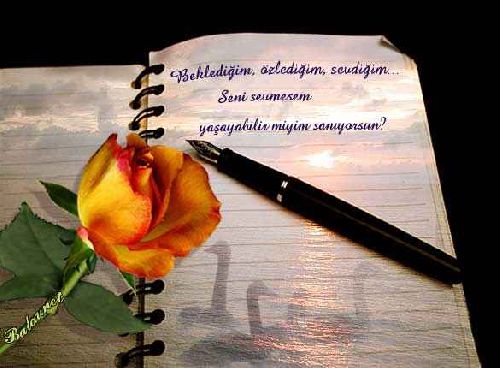 Beklediğim, özlediğim, sevdiğim...
Seni sevmesem
yaşayabilir miyim sanıyorsun?